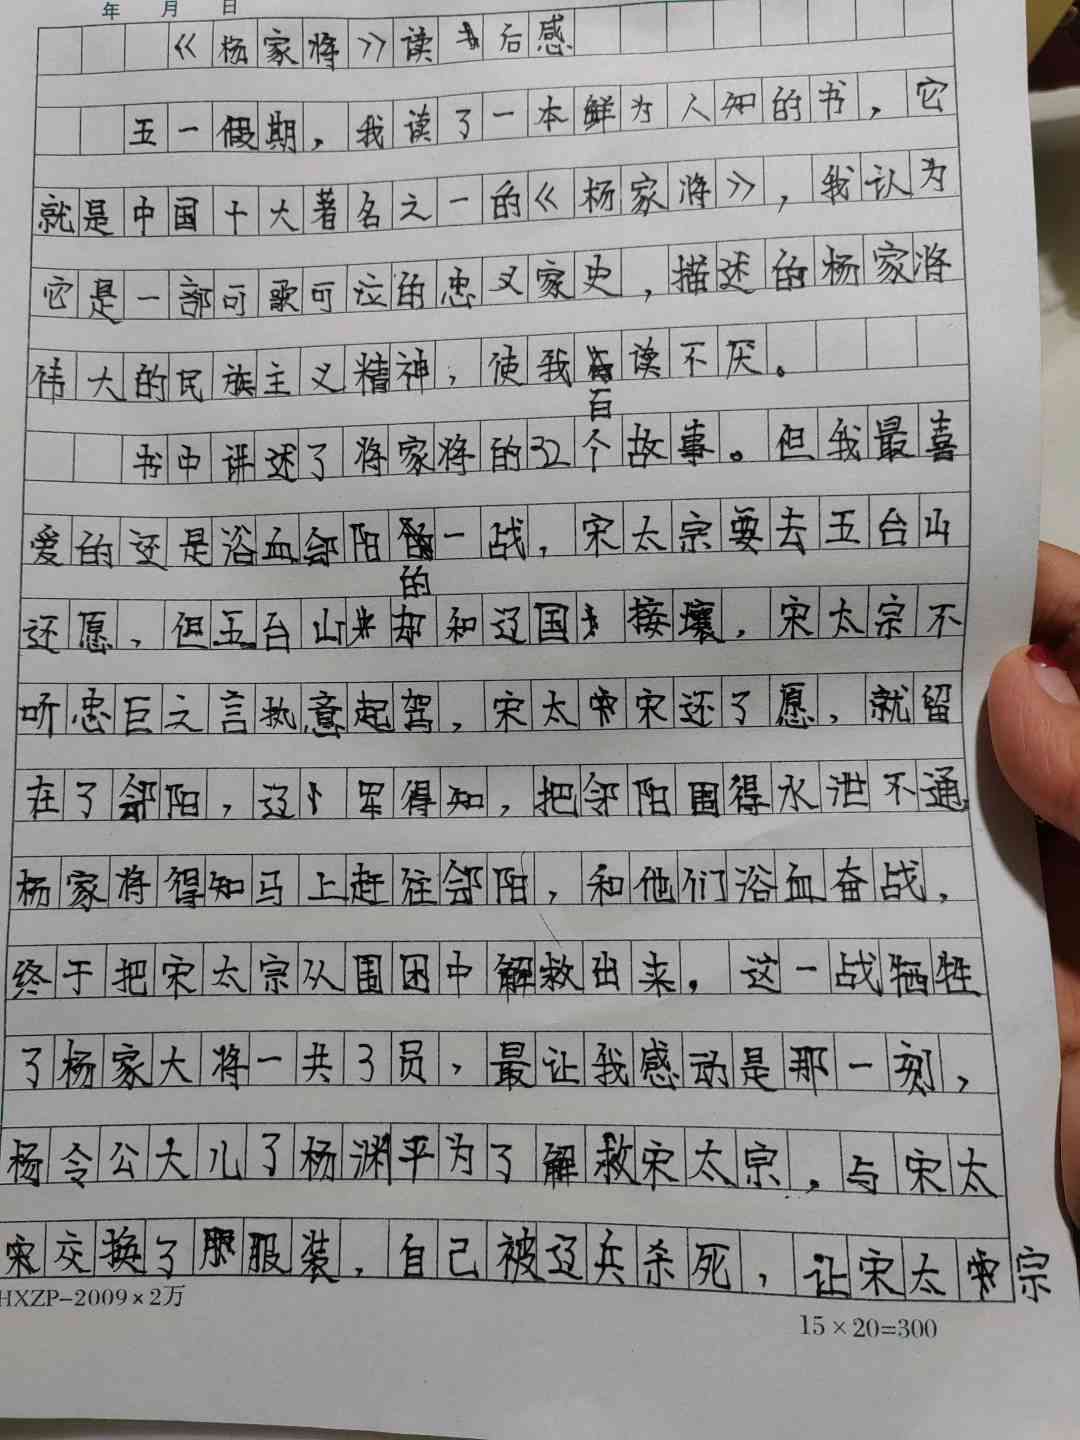 年 月 日
《杨家将》读后感
五一假期，我读了一本鲜为人知的书，它
就是中国十大著名之一的《杨家将》，我认为
它是一部可歌可泣的忠义家史，描述的杨家将
伟大的民族主义精神，使我百读不厌。
书中讲述了将家将的32个故事。但我最喜
爱的还是浴血邻阳的一战，宋太宗要去五台山
还愿，但五台山却和辽国接壤，宋太宗不
听忠巨之言执意起驾，宋太宋还了愿，就留
在了邻阳，辽军得知，把邻阳围得水泄不通
杨家将得知马上赶往邻阳，和他们浴血奋战，
终于把宋太宗从围困中解救出来。这一战牺牲
了杨家大将一共3员，最让我感动是那一刻，
杨令公大儿了杨渊平为了解救宋太宗，与宋太
宋交换了服装，自己被辽兵杀死，让宋太宗
HXZP-2009×2万
15×20=300